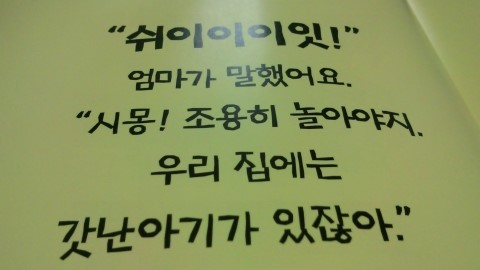 “쉬이이이잇!”
엄마가 말했어요.
“시몽! 조용히 놀아야지.
우리 집에는
갓난아기가 있잖아.”